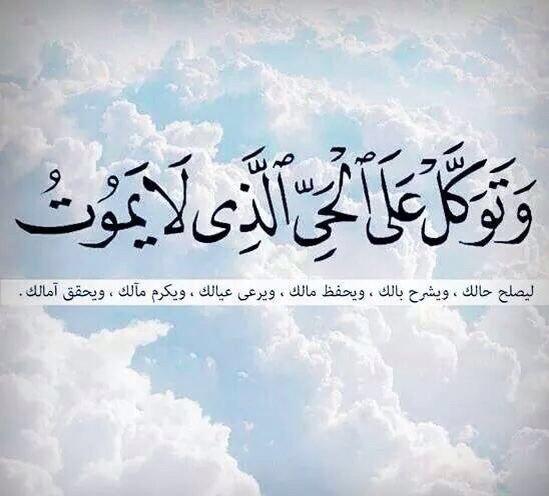 وَتَوَكَّلْ عَلَى ٱلْحَىِّ ٱلَّذِى لَا يَمُوتُ
ليصلح حالك ، ويشرح بالك ، ويحفظ مالك ، ويرعى عيالك ، ويكرم مآلك ، ويحقق آمالك .